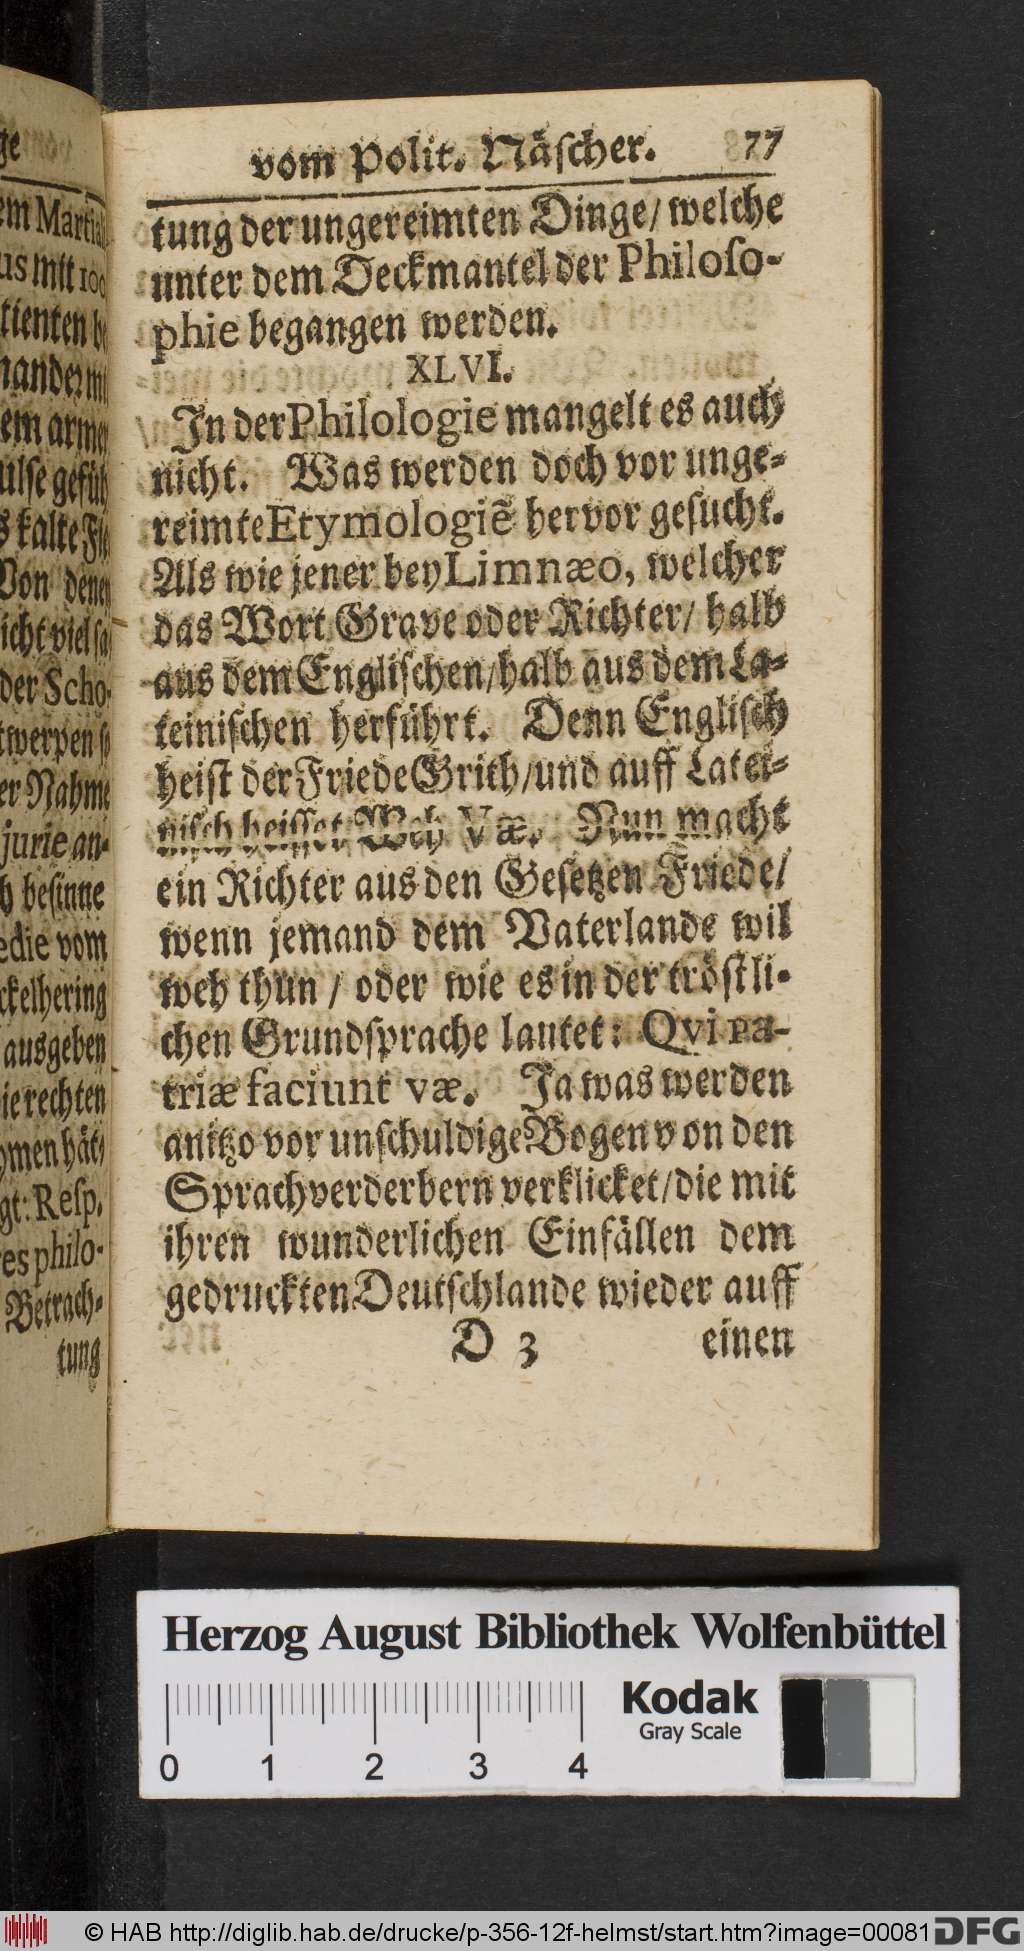 ge
em Martia
us mit 100
tienten
nander mi
em armen
ulse gefüh
s kalte Fie
Von denen
icht viel sa
der Scho-
twerpen
er Nahme
jurie an-
h besinne
edie vom
ckelhering
ausgeben
ie rechten
men hät-
gt: Resp.
es philo-
Betrach-
tung
vom Polit. Näſcher. 77
tung der ungereimten Dinge/ welche
unter dem Deckmantel der Philoſo-
phie begangen werden.
XLVI.
In der Philologie mangelt es auch
nicht. Was werden doch vor unge-
reimte Etymologiẽ hervor geſucht.
Als wie jener bey Limnæo, welcher
das Wort Grave oder Richter/ halb
aus dem Engliſchen/ halb aus dem La-
teiniſchen herführt. Denn Engliſch
heiſt der Friede Grith/ und auff Latei-
niſch heiſſet Weh Væ. Nun macht
ein Richter aus den Geſetzen Friede/
wenn jemand dem Vaterlande wil
weh thun / oder wie es in der tröſtli-
chen Grundſprache lautet: Qvi pa-
triæ faciunt væ. Ja was werden
anitzo vor unſchuldige Bogen von den
Sprachverderbern verklicket/ die mit
ihren wunderlichen Einfällen dem
gedruckten Deutſchlande wieder auff
D 3 einen
Herzog August Bibliothek Wolfenbüttel
Kodak
Gray Scale
0 1 2 3 4
© HAB http://diglib.hab.de/drucke/p-356-12f-helmst/start.htm?image=00081
DFG